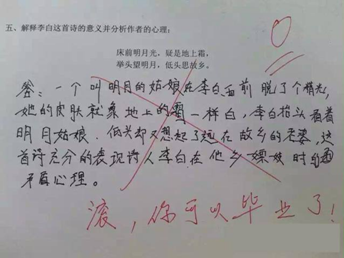 五、解释李白这首诗的意义并分析作者的心理：
床前明月光，疑是地上霜，
举头望明月，低头思故乡。
答：一个叫明月的姑娘在李白面前脱了个精光，
她的皮肤就象地上的霜一样白，李白抬头看着
明月姑娘，低头却又想起了远在故乡的老婆，这
首诗充分的表现诗人李白在他乡嫖妓时的
矛盾心理。
滚，你可以毕业了！